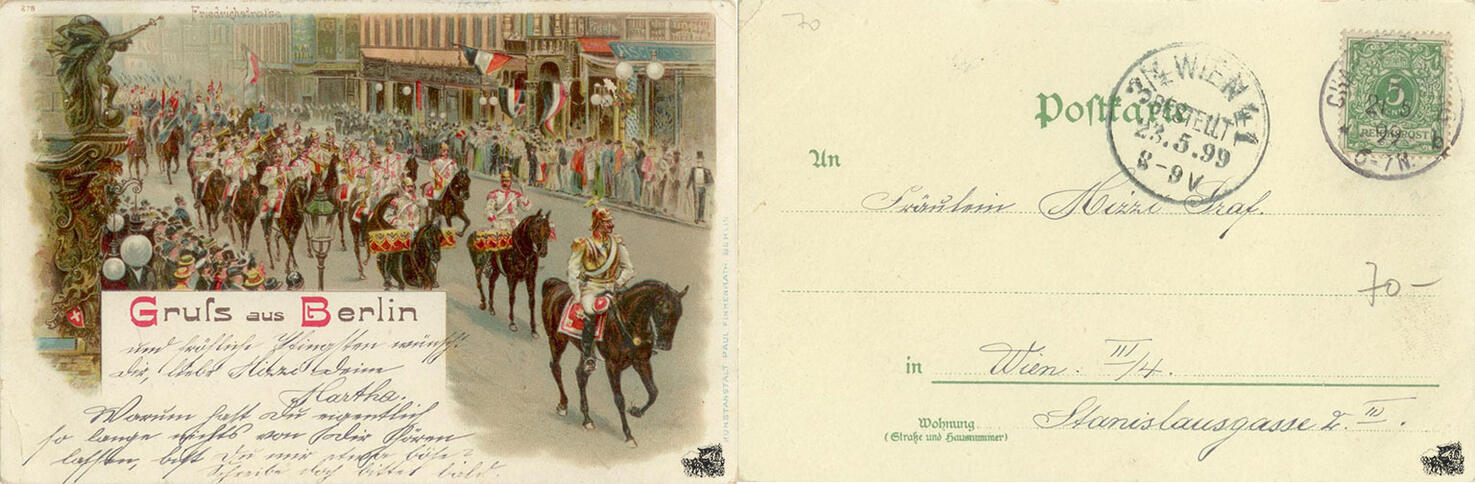 278
Friedrichstraſse
Gruſs aus Berlin
und fröhliche Pfingsten wünscht
Dir, liebe Mizzi Deine
Martha.
Warum hast Du eigentlich
so lange nichts von Dir hören
lassen, bist Du mir etwa böse?
Schreibe doch bitte bald.
KUNSTANSTALT PAUL FINKENRATH, BERLIN
70
Postkarte
3/4 WIEN 41
BESTELLT
23.5.99
8-9V
5
REICHSPOST
6-7N
An
Fräulein Mizzi Graf.
70-
in Wien. III/4.
Wohnung
(Straße und Hausnummer)
Stanislausgasse 2. III.